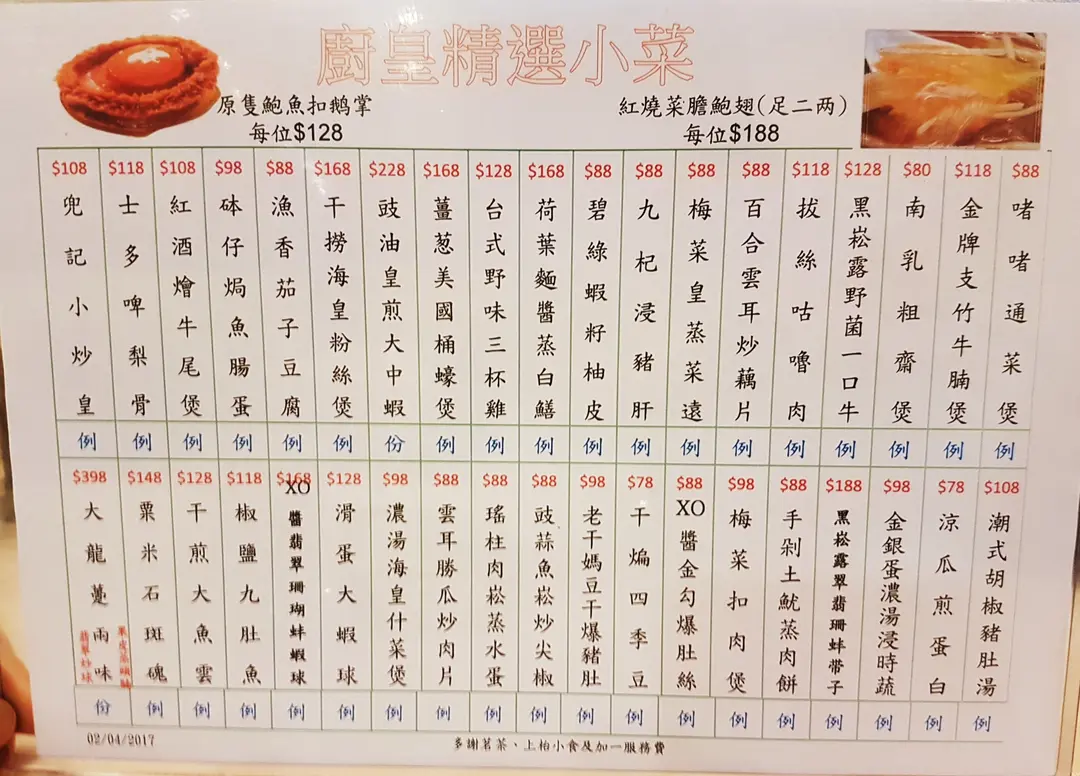 廚皇精選小菜
原隻鮑魚扣鹅掌
每位$128
紅燒菜膽鮑翅(足二两)
每位$188
$108
兜記小炒皇
例
$118
士多啤梨骨
例
$108
紅酒燴牛尾煲
例
$98
砵仔焗魚腸蛋
例
$88
漁香茄子豆腐
例
$168
干撈海皇粉絲煲
例
$228
豉油皇煎大中蝦
份
$168
薑葱美國桶蠔煲
例
$128
台式野味三杯雞
例
$168
荷葉麵醬蒸白鱔
例
$88
碧綠蝦籽柚皮
例
$88
九杞浸豬肝
例
$88
梅菜皇蒸菜遠
例
$88
百合雲耳炒藕片
例
$118
拔絲咕嚕肉
例
$128
黑崧露野菌一口牛
例
$80
南乳粗齋煲
例
$118
金牌支竹牛腩煲
例
$88
啫啫通菜煲
例
$398
大龍躉兩味
翡翠炒球
份
$148
粟米石斑魂
例
$128
干煎大魚雲
例
$118
椒鹽九肚魚
例
$168
XO醬翡翠珊瑚蚌蝦球
例
$128
滑蛋大蝦球
例
$98
濃湯海皇什菜煲
例
$88
雲耳勝瓜炒肉片
例
$88
瑤柱肉崧蒸水蛋
例
$88
豉蒜魚崧炒尖椒
例
$98
老干媽豆干爆豬肚
例
$78
干煸四季豆
例
$88
XO醬金勾爆肚絲
例
$98
梅菜扣肉煲
例
$88
手剁土魷蒸肉餅
例
$188
黑崧露翠翡珊蚌带子
例
$98
金銀蛋濃湯浸時蔬
例
$78
涼瓜煎蛋白
例
$108
潮式胡椒豬肚湯
例
02/04/2017
多謝茗茶、上枱小食及加一服務費